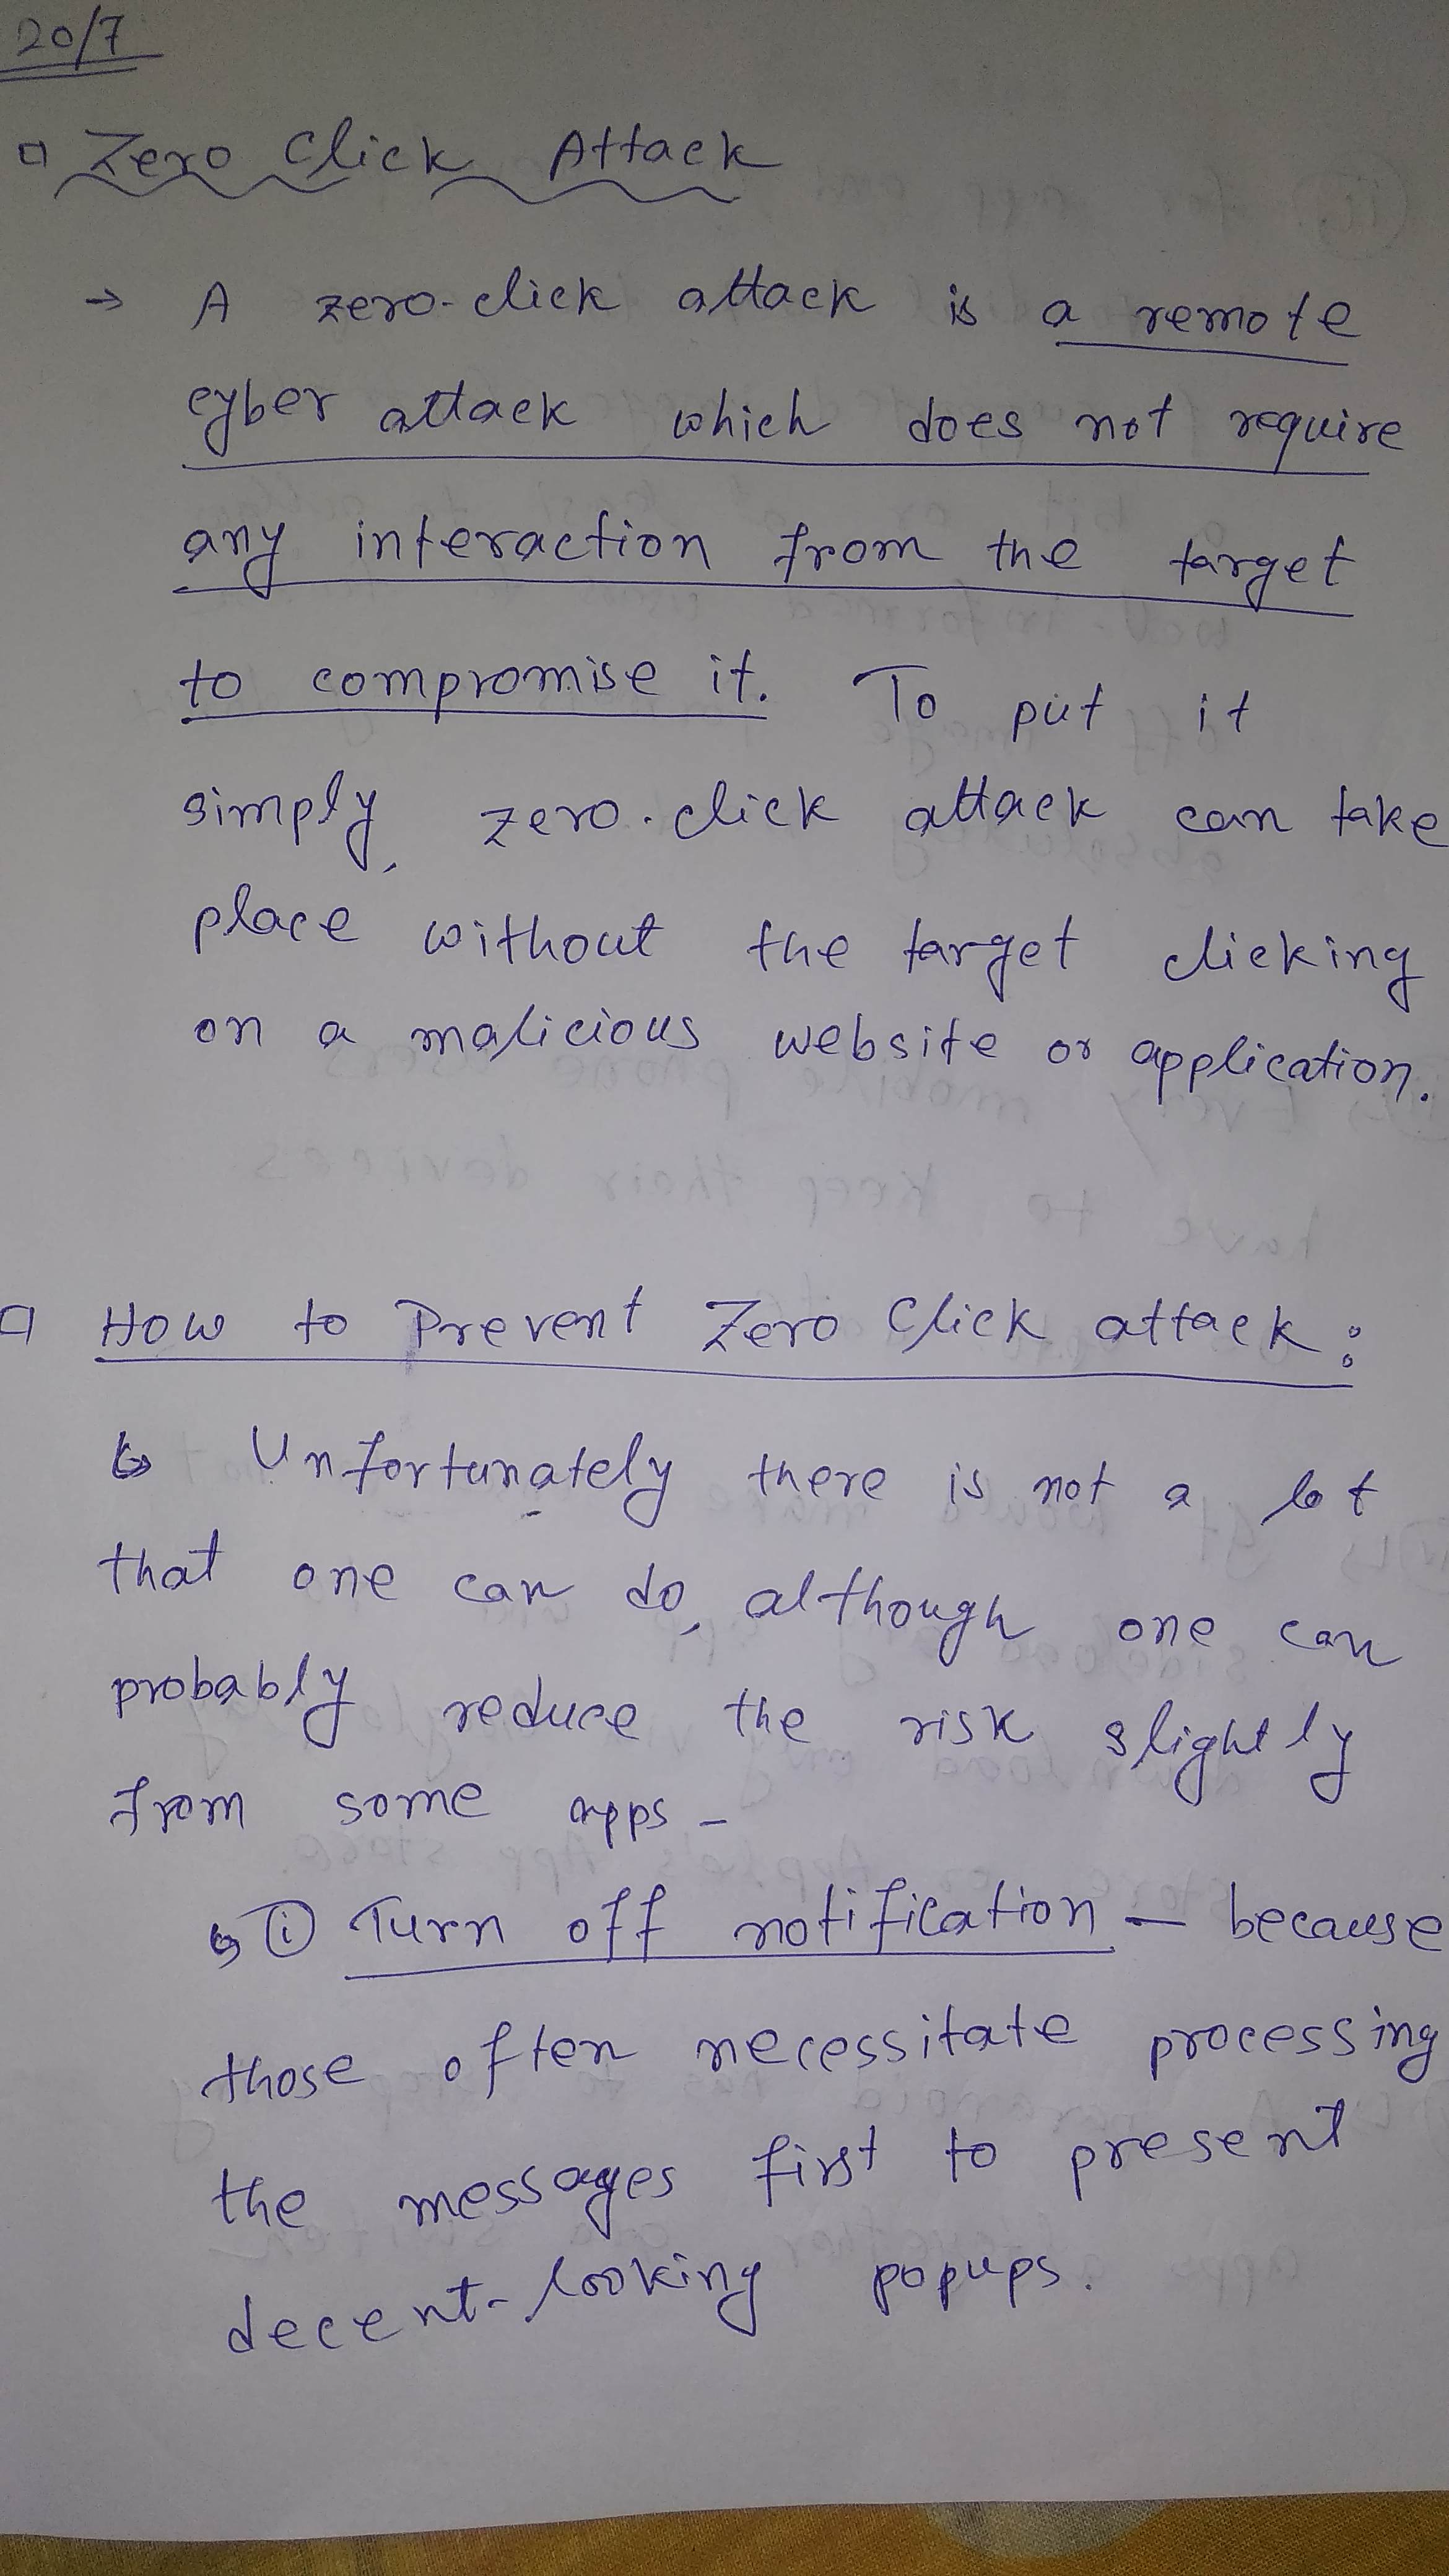 20/7
Zero Click Attack
→ A zero-click attack is a remote
cyber attack which does not require
any interaction from the target
to compromise it. To put it
simply, zero-click attack can take
place without the target clicking
on a malicious website or application.
How to Prevent Zero Click attack:
↳ Unfortunately there is not a lot
that one can do, although one can
probably reduce the risk slightly
from some apps -
↳ (i) Turn off notification - because
those often necessitate processing
the messages first to present
decent-looking popups.